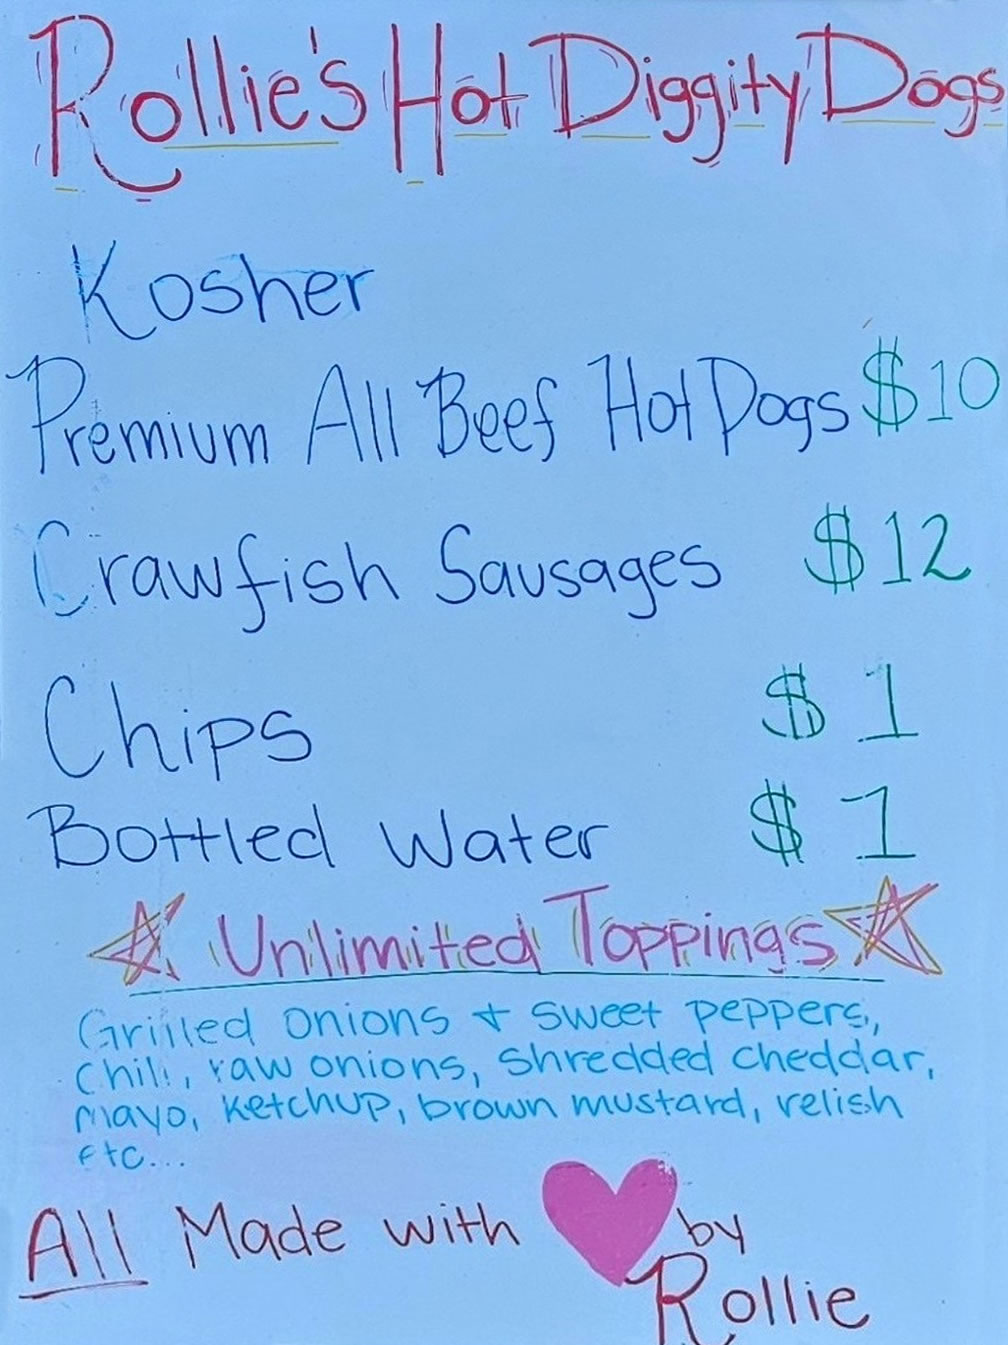 Rollie's Hot Diggity Dogs
Kosher
Premium All Beef Hot Dogs $10
Crawfish Sausages $12
Chips $1
Bottled Water $1
Unlimited Toppings
Grilled onions + sweet peppers,
chili, raw onions, shredded cheddar,
mayo, ketchup, brown mustard, relish
etc...
All Made with by
Rollie